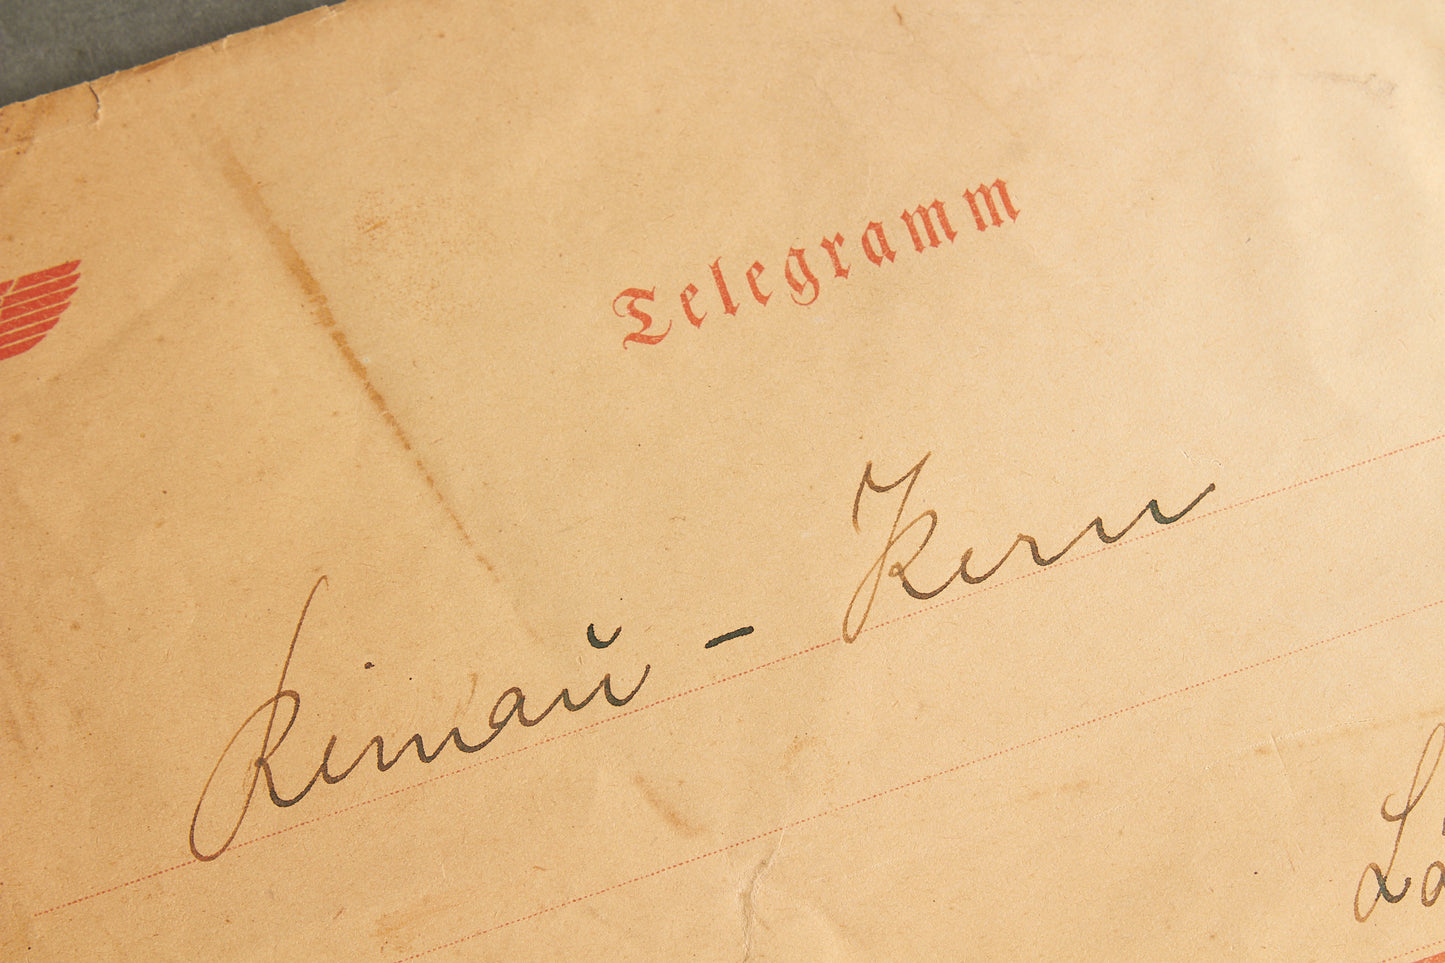 Telegramm
Reinaŭ - Kern